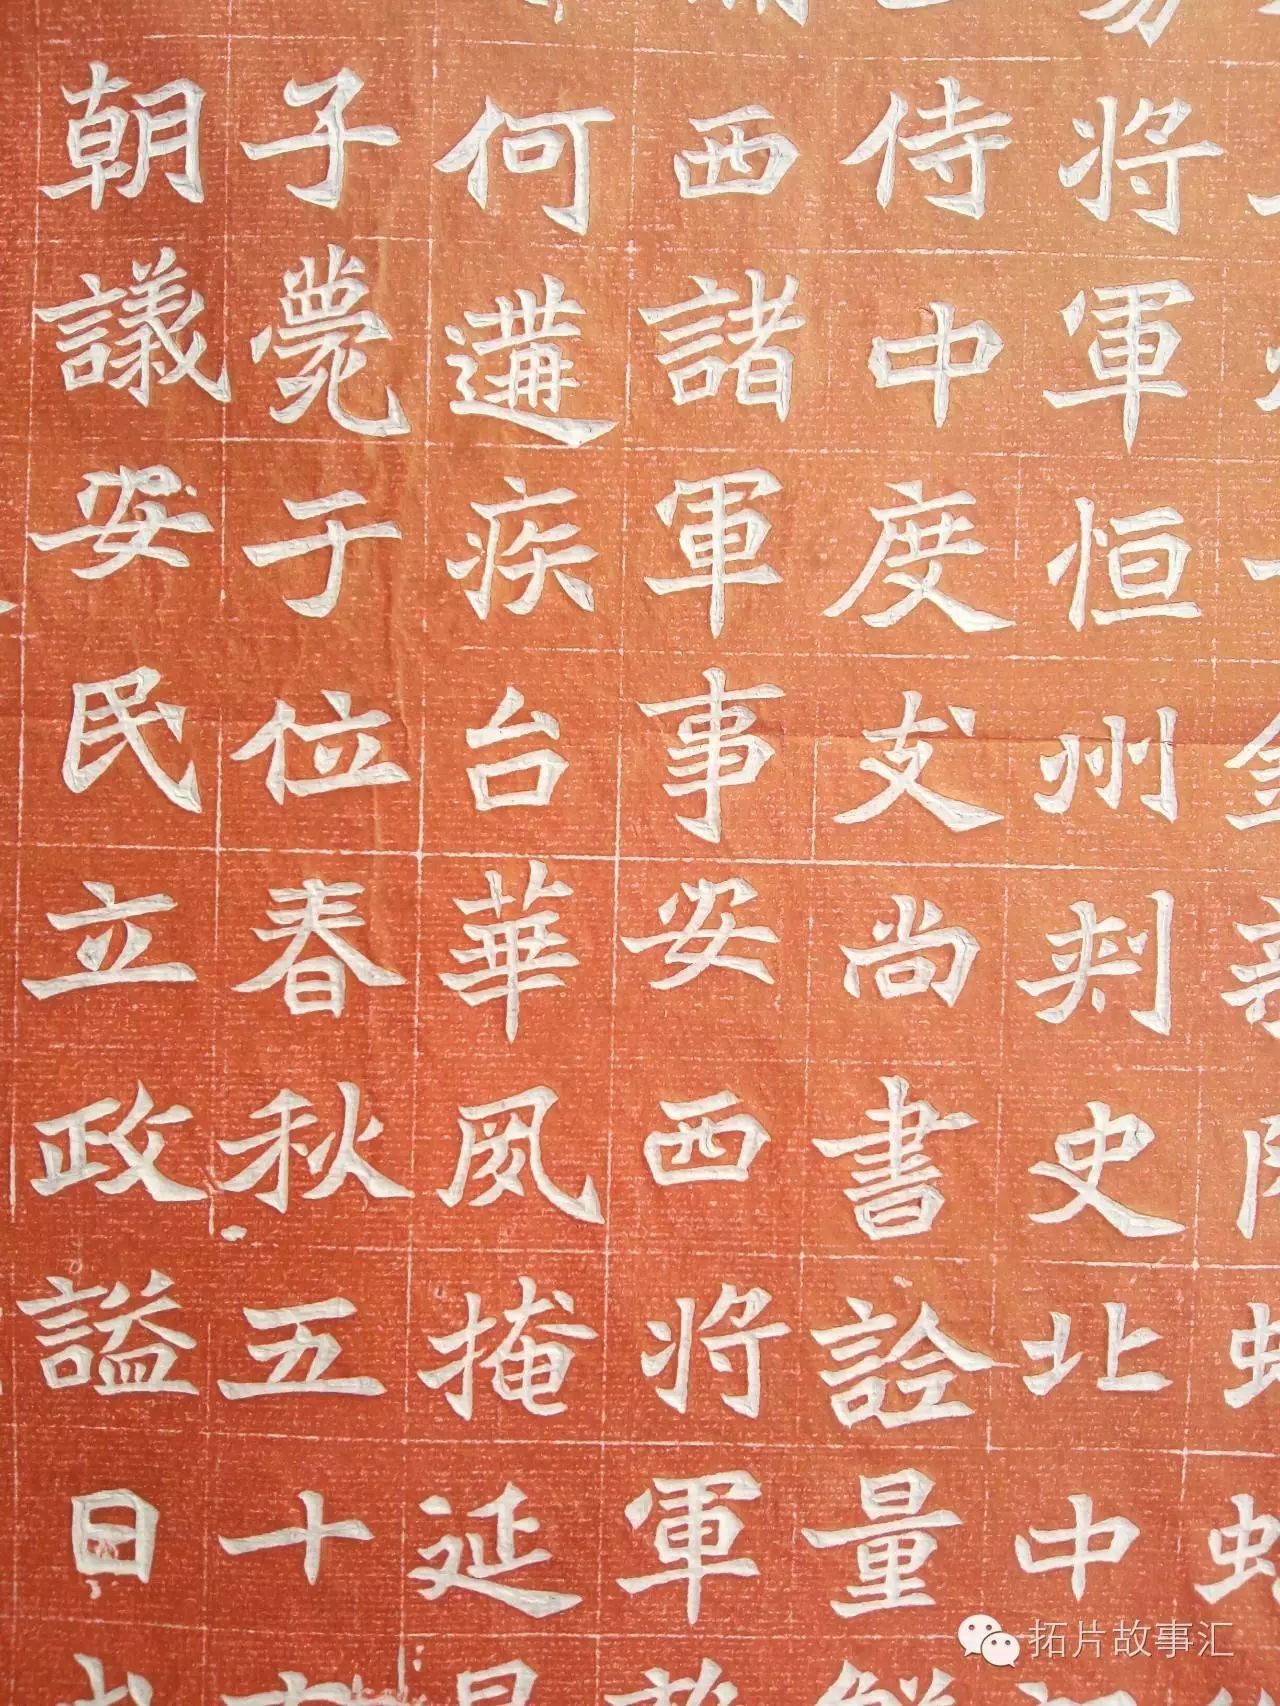 将軍恒州刾史北中
侍中度支尚書詮量
西諸軍事安西将軍
何遘疾台華夙掩延
子薨于位春秋五十
朝議安民立政謚日
拓片故事汇